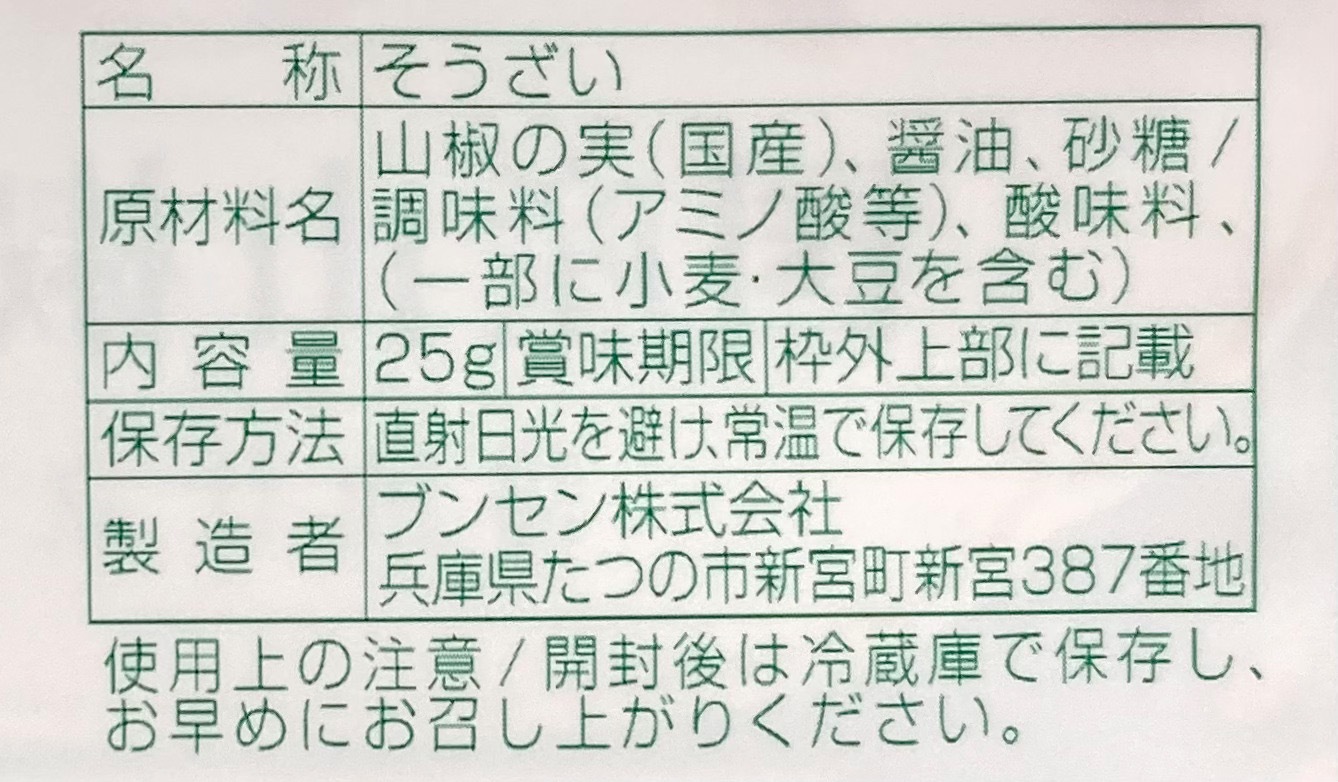 名称 そうざい
原材料名 山椒の実(国産)、醤油、砂糖/
調味料(アミノ酸等)、酸味料、
(一部に小麦・大豆を含む)
内容量 25g 賞味期限 枠外上部に記載
保存方法 直射日光を避け、常温で保存してください。
製造者 ブンセン株式会社
兵庫県たつの市新宮町新宮387番地
使用上の注意/開封後は冷蔵庫で保存し、
お早めにお召し上がりください。